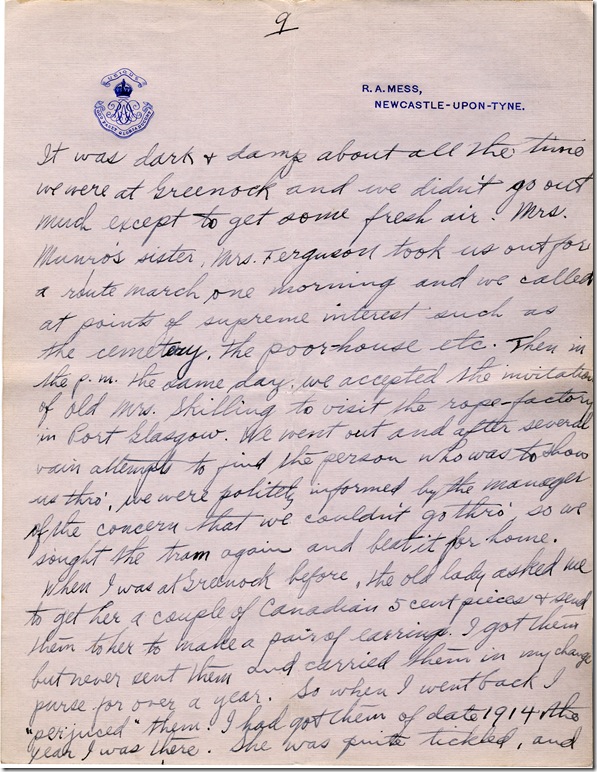 9
UBIQUE
QUO FAS ET GLORIA DUCUNT
R. A. MESS,
NEWCASTLE-UPON-TYNE.
It was dark & damp about all the time
we were at Greenock and we didn't go out
much except to get some fresh air. Mrs.
Munro's sister, Mrs. Ferguson took us out for
a route march one morning and we called
at points of supreme interest such as
the cemetery, the poorhouse etc. Then in
the p.m. the same day, we accepted the invitation
of old Mrs. Skilling to visit the rope-factory
in Port Glasgow. We went out and after several
vain attempts to find the person who was to show
us thro', we were politely informed by the manager
of the concern that we couldn't go thro' so we
sought the tram again and beat it for home.
When I was at Greenock before, the old lady asked me
to get her a couple of Canadian 5 cent pieces & send
them to her to make a pair of earrings. I got them
but never sent them and carried them in my change
purse for over a year. So when I went back I
"perjuced" them. I had got them of date 1914 the
year I was there. She was quite tickled, and